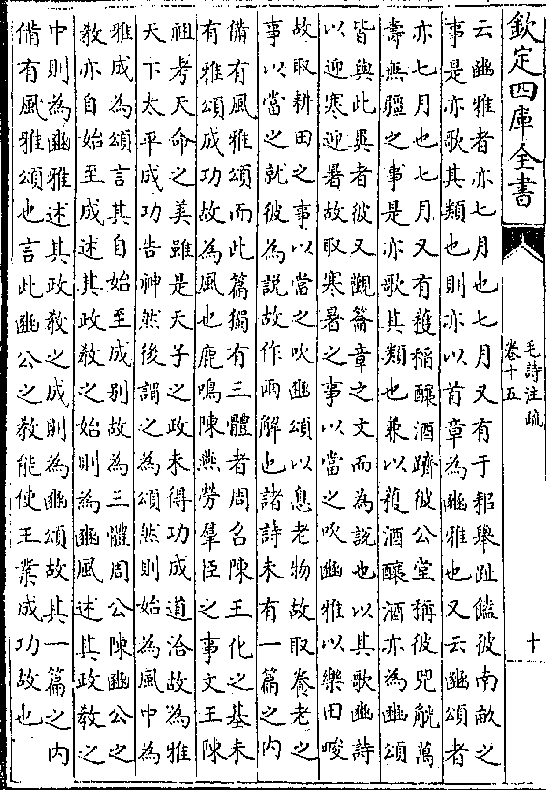 欽定四庫全書
毛詩注疏
卷十五
十
云豳雅者亦七月也七月又有于耜舉趾饁彼南畝之
事是亦歌其類也則亦以首章為豳雅也又云豳頌者
亦七月也七月又有穫稻釀酒躋彼公堂稱彼兕觥萬
壽無疆之事是亦歌其類也兼以穫酒釀酒亦為豳頌
皆與此異者彼又觀籥章之文而為說也以其歌豳詩
以迎寒迎暑故取寒暑之事以當之吹豳雅以樂田畯
故取耕田之事以當之吹豳頌以息老物故取養老之
事以當之就彼為說故作兩解也諸詩未有一篇之內
備有風雅頌而此篇獨有三體者周召陳王化之基未
有雅頌成功故為風也鹿鳴陳燕勞羣臣之事文王陳
祖考天命之美雖是天子之政未得功成道洽故為雅
天下太平成功告神然後謂之為頌然則始為風中為
雅成為頌言其自始至成別故為三體周公陳豳公之
教亦自始至成述其政教之始則為豳風述其政教之
中則為豳雅述其政教之成則為豳頌故其一篇之內
備有風雅頌也言此豳公之教能使王業成功故也